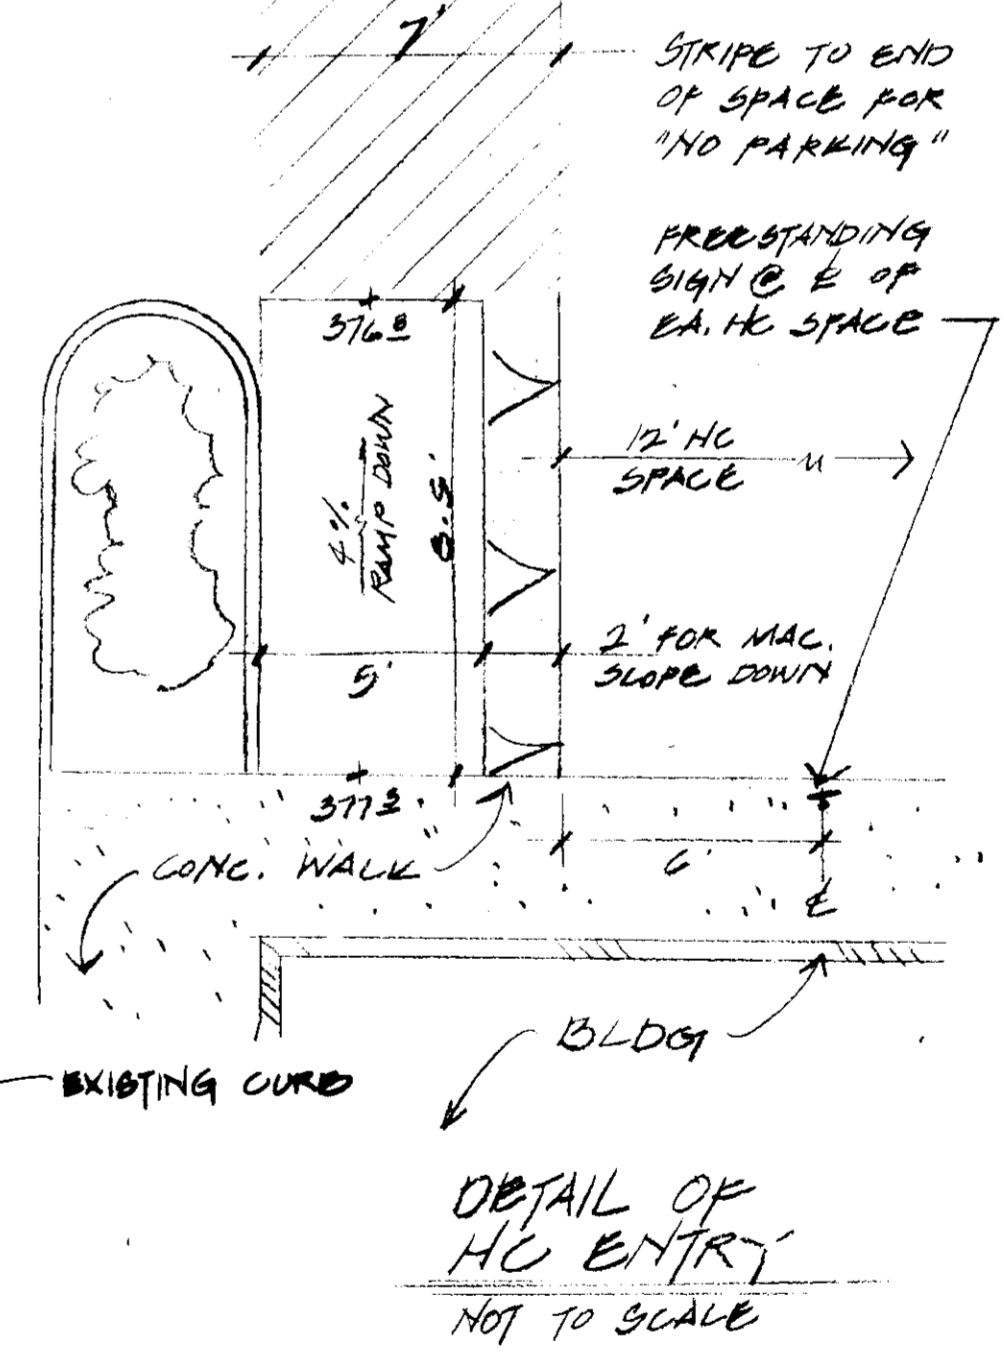 7'
STRIPE TO END
OF SPACE FOR
"NO PARKING"
FREESTANDING
SIGN @ ℄ OF
EA. HC SPACE
376 8
12' HC
SPACE
4%
RAMP DOWN
8.5'
2' FOR MAC.
SLOPE DOWN
5'
377 3
CONC. WALK
6'
℄
BLDG
EXISTING CURB
DETAIL OF
HC ENTRY
NOT TO SCALE